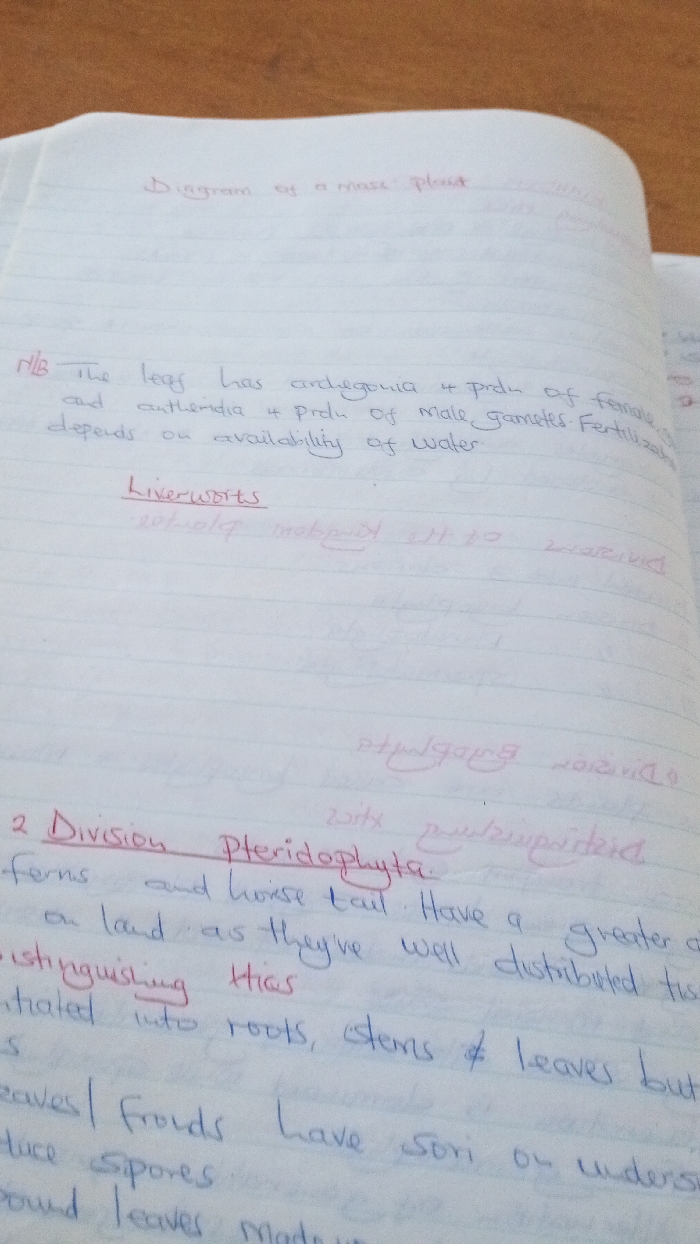 Diagram of a moss plant
N/B The leaf has archegonia 4 prdn of female
and antheridia 4 prdn of male gametes. Fertilizatn
depends on availability of water
Liverworts
2 Division Pteridophyta.
ferns and horse tail. Have a greater
on land as they've well distributed tis
istinguishing Xtics
tiated into roots, stems & leaves but
s
eaves/ fronds have sori on unders
duce spores
pound leaves made